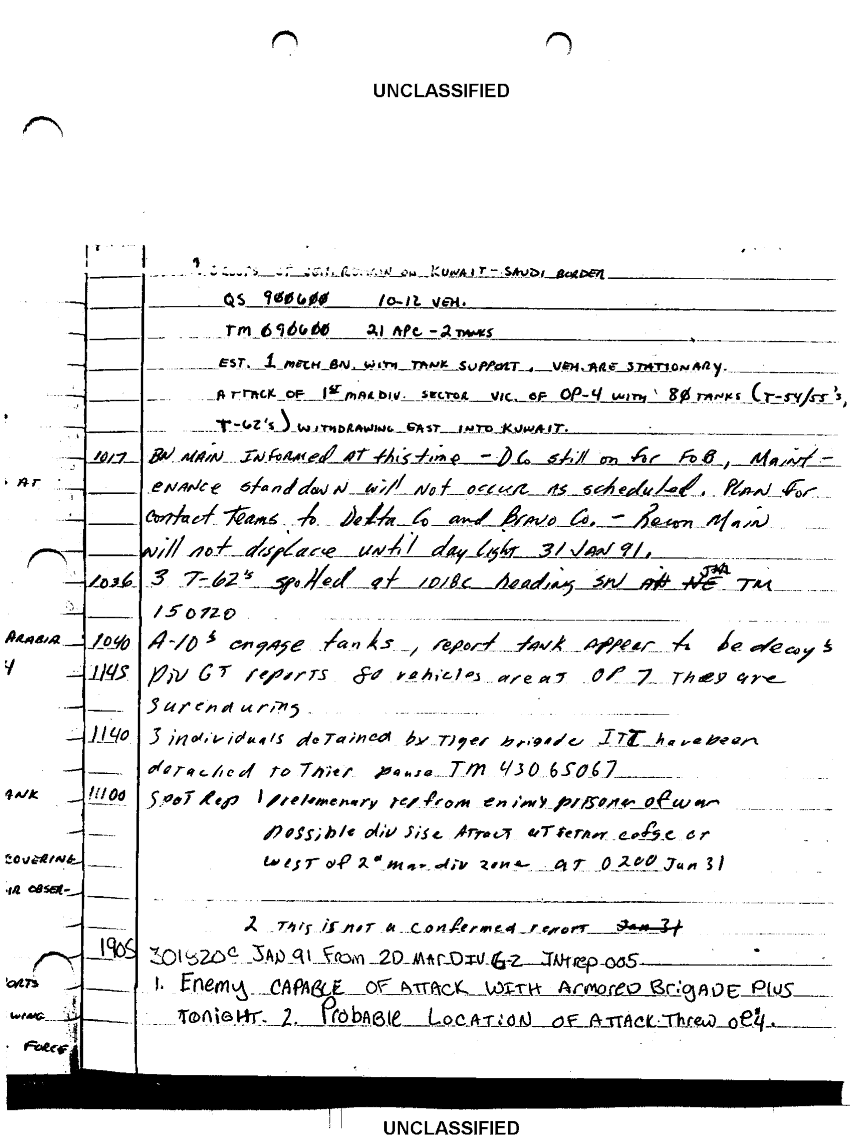 UNCLASSIFIED
ON KUWAIT-SAUDI BORDER
QS 900600 10-12 VEH.
TM 690600 21 APC-2 TANKS
EST. 1 MECH BN. WITH TANK SUPPORT, VEH. ARE STATIONARY.
ATTACK OF 1ST MAR DIV. SECTOR VIC. OF OP-4 WITH 80 TANKS (T-54/55's,
T-62's) WITHDRAWING EAST INTO KUWAIT.
1017 BN MAIN INFORMED AT this time - D Co still on for FOB, Maint-
AT enance standdown will not occur as scheduled. Plan for
contact teams to Delta Co and Bravo Co. - Recon Main
will not displace until daylight 31 JAN 91.
1036 3 T-62's spotted at 1018C heading SW TM
150720
ARABIA 1040 A-10's engage tanks, report tank appear to be decoy's
1145 Div G7 reports 80 vehicles are at OP 7 They are
surenduring
1140 3 individuals detained by Tiger brigade ITT have been
detached to Thier TM 43065067
ANK 11100 Spot Rep 1 prelemenary rep from enimy prisoner of war
possible div sise or
COVERING west of 2d mar div zone at 0200 Jan 31
IR OBSER-
2 This is not a confermed report Jan 31
1905 301820C JAN 91 From 2D MAR DIV G-2 INTREP 005
ORTS 1. Enemy CAPABLE OF ATTACK WITH Armored BrigADE PLUS
WING TONIGHT. 2. Probable LOCATION OF ATTACK Threw OP4.
FORCE
UNCLASSIFIED